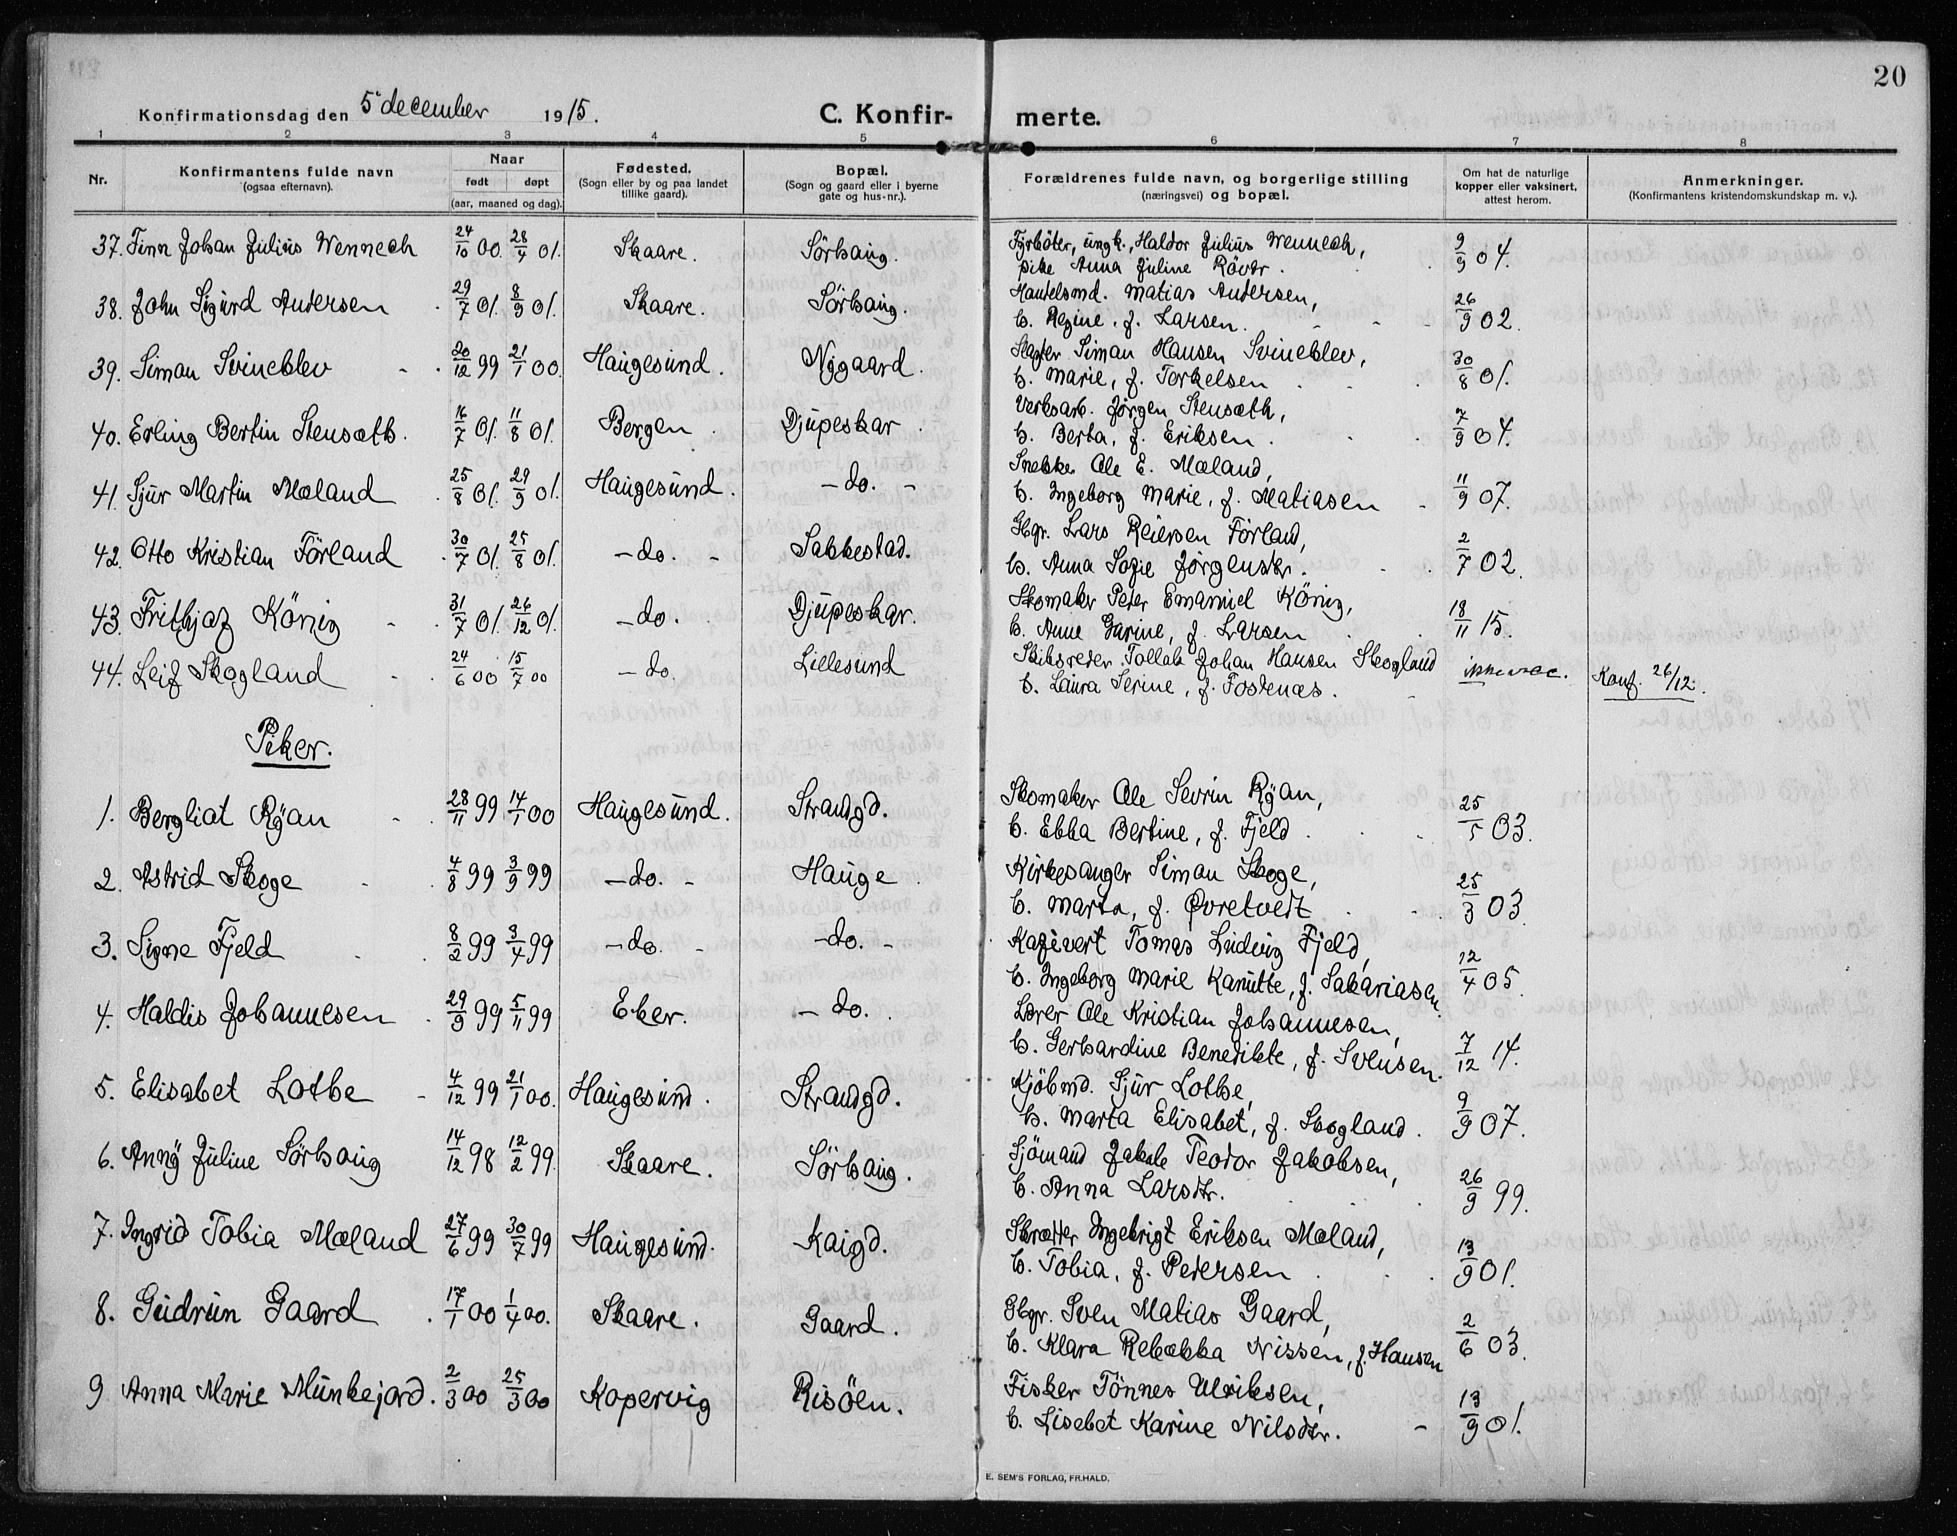 20
Konfirmationsdag den 5' december 1915. C. Konfirmerte.
1 2 3 4 5 6 7 8
Nr. | Konfirmantens fulde navn (ogsaa efternavn). | Naar født døpt (aar, maaned og dag). | Fødested. (Sogn eller by og paa landet tillike gaard). | Bopæl. (Sogn og gaard eller i byerne gate og hus-nr.). | Forældrenes fulde navn, og borgerlige stilling (næringsvei) og bopæl. | Om hat de naturlige kopper eller vaksinert, attest herom. | Anmerkninger. (Konfirmantens kristendomskundskap m. v.).
37. Finn Johan Julius Wennech 24/10 00. 28/4 01. Skaare. Sörhaug. Fyrböter, ungk., Haldor Julius Wennech, 9/9 04.
pike Anna Juline Röver.
38. John Sigurd Andersen 29/7 01. 8/9 01. Skaare. Sörhaug. Handelsmd. Matias Andersen, 26/9 02.
h. Regine, f. Larsen.
39. Simon Svineblev 20/12 99 21/1 00. Haugesund. Nygaard. Slagter Simon Hansen Svineblev, 30/8 01.
h. Marie, f. Torkelsen
40. Erling Bertin Stensæth. 16/7 01. 11/8 01. Bergen. Djupeskar Verksarb. Jörgen Stensæth, 7/9 04.
h. Berta, f. Eriksen.
41. Sjur Martin Mæland 25/8 01. 29/9 01. Haugesund. - do. - Snekker Ole E. Mæland, 11/9 07.
h. Ingeborg Marie, f. Matiasen
42. Otto Kristian Förland 30/7 01. 25/8 01. - do. - Sakkestad. Gbgr. Lars Reiersen Förland, 2/7 02.
h. Anna Sofie Jörgensdr.
43. Frithjof König 31/7 01. 26/12 01. - do. Djupeskar. Skomaker Peter Emanuel König, 18/11 15.
h. Anne Garine, f. Larsen
44. Leif Skogland 24/6 00 15/7 00 - do. Lillesund Skibsreder Tollak Johan Hansen Skogland ikke vac. Konf. 26/12.
h. Laura Serine, f. Fostenæs.
Piker.
1. Bergliot Ryan 28/11 99 14/1 00 Haugesund. Strandgd. Skomaker Ole Sevrin Ryan, 25/5 03.
h. Ebba Bertine, f. Fjeld
2. Astrid Skoge 4/8 99 3/9 99 - do. - Hauge Kirkesanger Simon Skoge, 25/3 03
h. Marta, f. Øvretvedt
3. Signe Fjeld 8/2 99 3/4 99 - do. - - do. - Kafévert Tomas Ludvig Fjeld, 12/4 05.
h. Ingeborg Marie Kanutte, f. Sakariasen
4. Haldis Johannesen 29/9 99 5/11 99 Eker. - do. Lærer Ole Kristian Johannesen, 7/12 14.
h. Gerhardine Benedikte, f. Svensen.
5. Elisabet Lothe 4/12 99 21/1 00. Haugesund. Strandgd. Kjöbmd. Sjur Lothe, 9/9 07.
h. Marta Elisabet, f. Skogland.
6. Anny Juline Sörhaug 14/12 98 12/2 99. Skaare. Sörhaug. Sjömand Jakob Teodor Jakobsen, 26/9 99.
h. Anna Larsdtr.
7. Ingrid Tobia Mæland 27/6 99 30/7 99 Haugesund. Kaigd. Skrædder Ingebrigt Eriksen Mæland, 13/9 01.
h. Tobia, f. Petersen
8. Gudrun Gaard 17/1 00 1/4 00. Skaare. Gaard. Gbgr. Sven Matias Gaard, 2/6 03.
h. Klara Rebekka Nissen, f. Hansen
9 Anna Marie Munkejord. 2/3 00 25/3 00 Kopervig Risöen. Fisker Tönnes Ulriksen, 13/9 01.
h. Lisebet Karine Nilsdtr.
E. SEM'S FORLAG, FR.HALD.